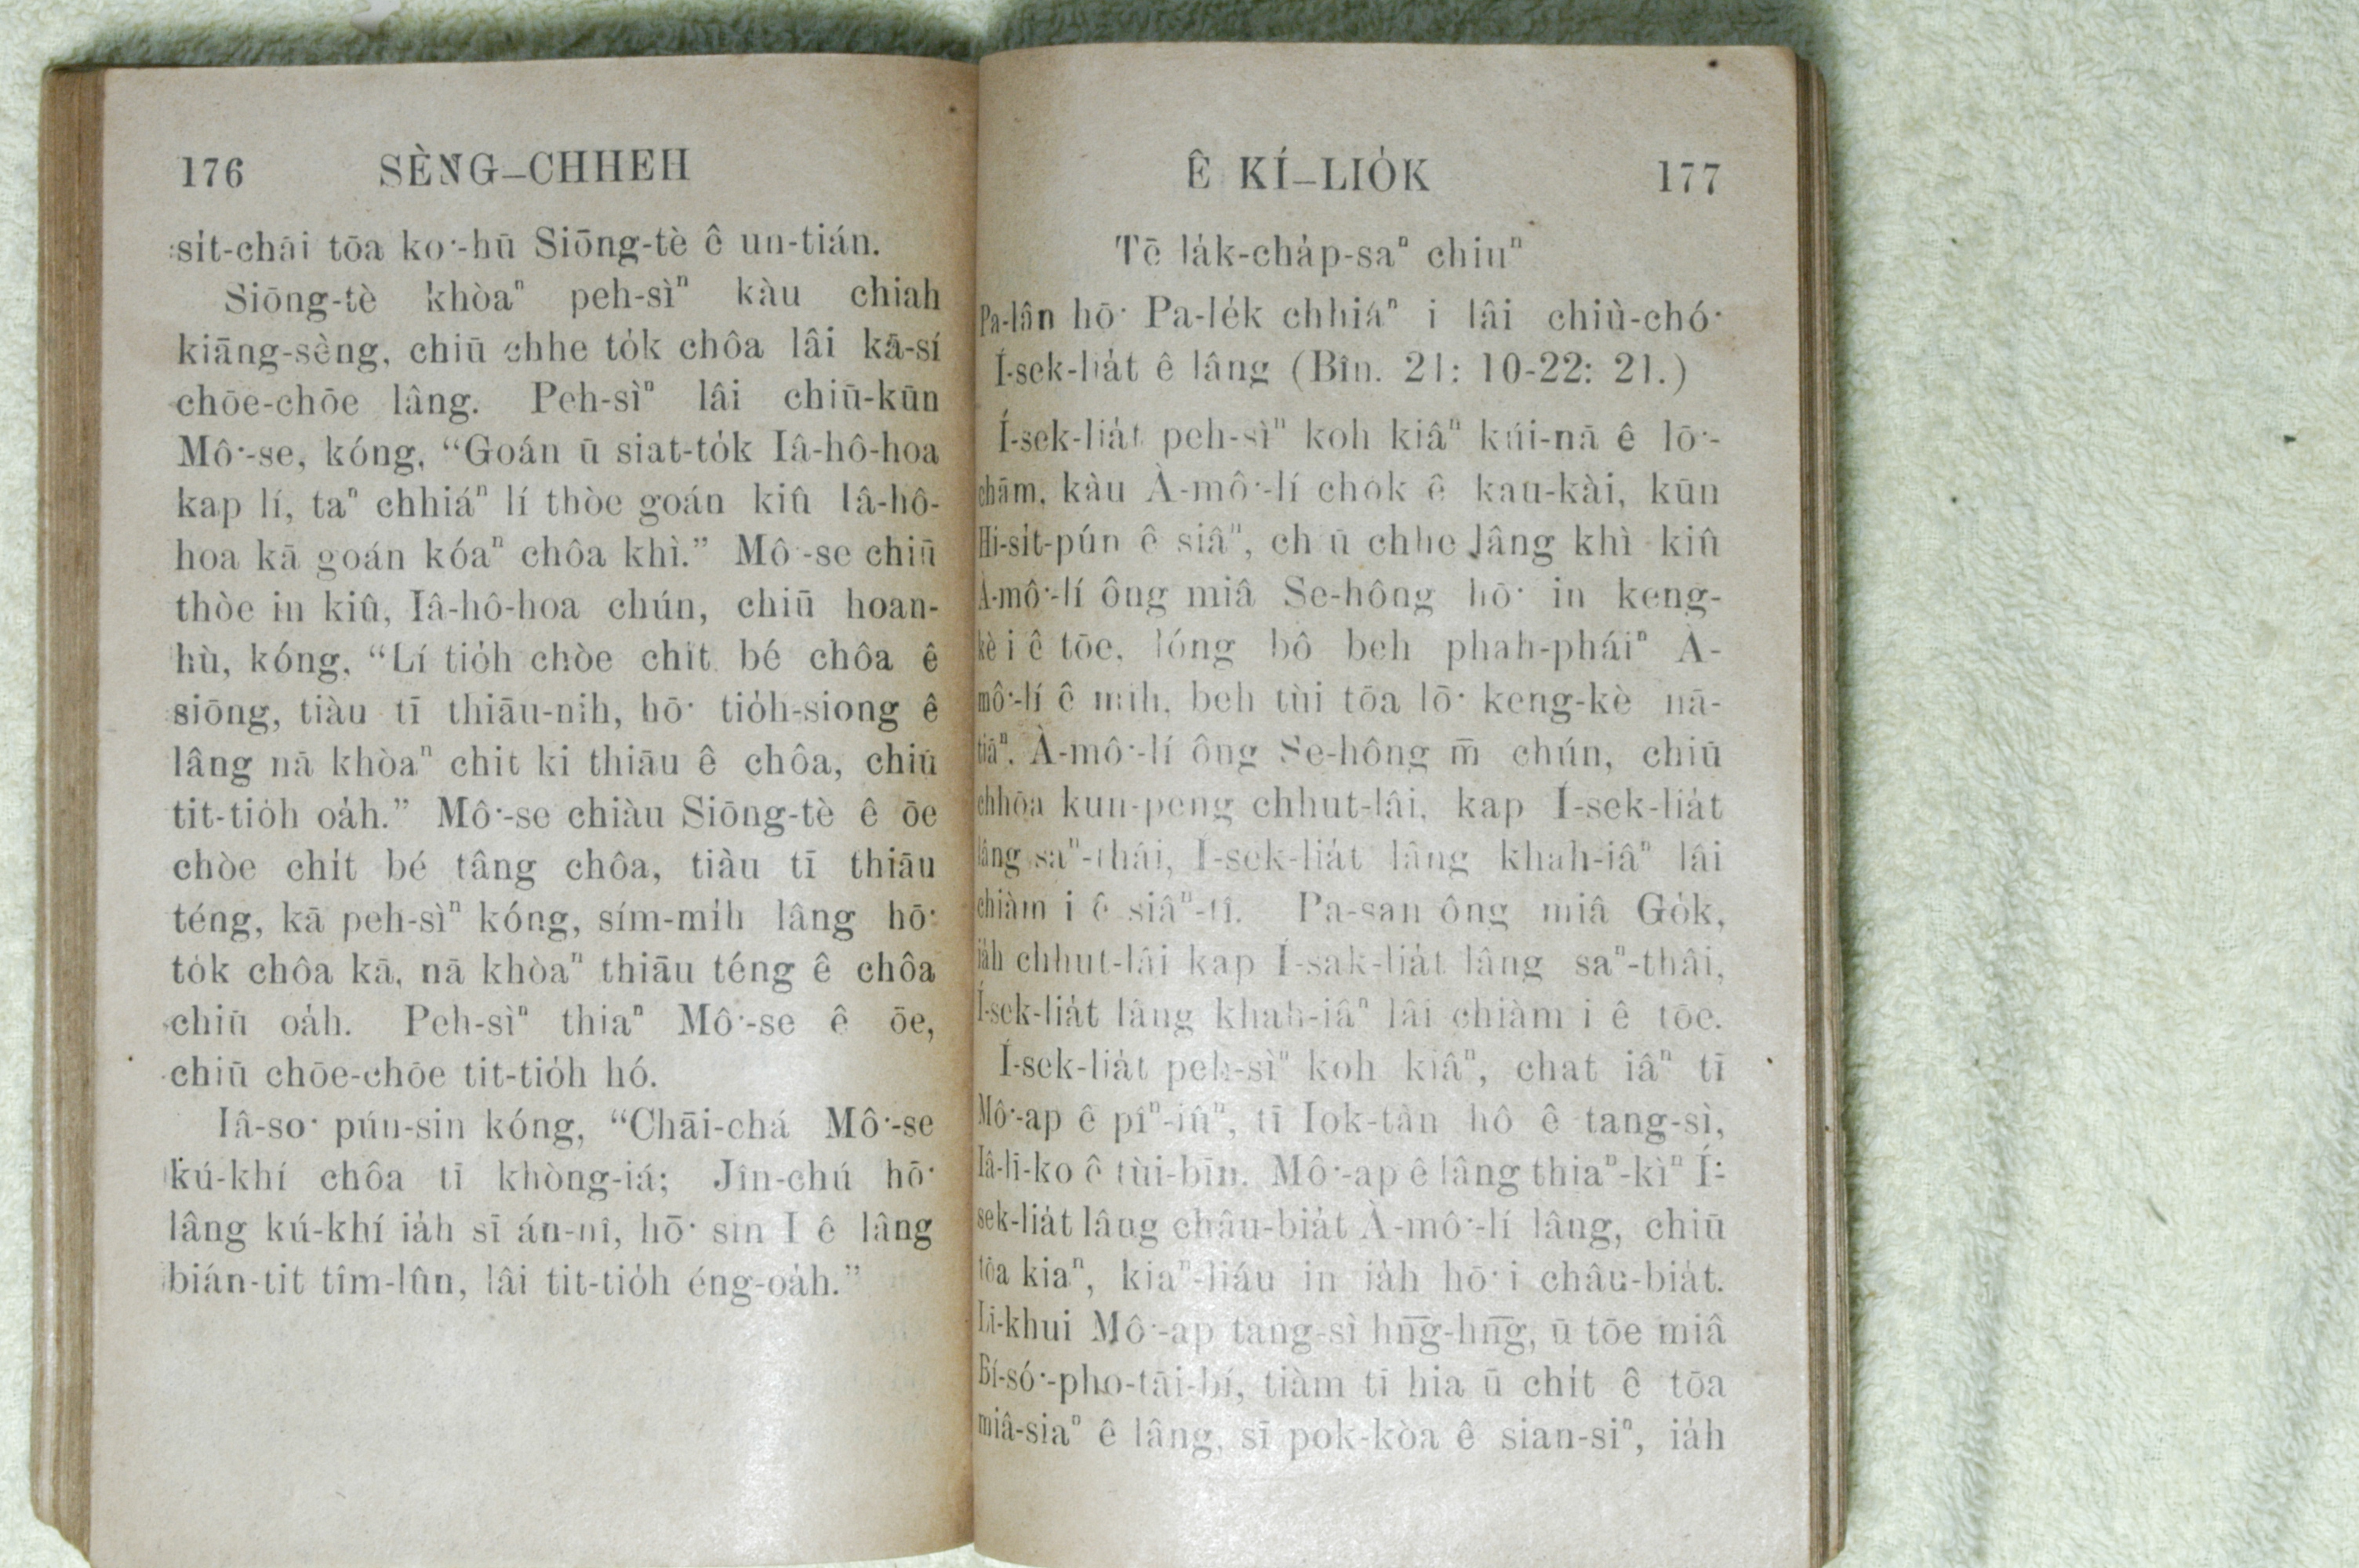 176 SÈNG-CHHEH
si̍t-chāi tōa ko͘-hū Siōng-tè ê un-tián.
Siōng-tè khòaⁿ peh-sìⁿ kàu chiah
kiāng-sèng, chiū chhe to̍k chôa lâi kā-sí
chōe-chōe lâng. Peh-sìⁿ lâi chiū-kūn
Mô͘-se, kóng, “Goán ū siat-to̍k Iâ-hô-hoa
kap lí, taⁿ chhiáⁿ lí thòe goán kiû Iâ-hô-
hoa kā goán kóaⁿ chôa khì.” Mô͘-se chiū
thòe in kiû, Iâ-hô-hoa chún, chiū hoan-
hù, kóng, “Lí tio̍h chòe chi̍t bé chôa ê
siōng, tiàu tī thiāu-nih, hō͘ tio̍h-siong ê
lâng nā khòaⁿ chit ki thiāu ê chôa, chiū
tit-tio̍h oa̍h.” Mô͘-se chiàu Siōng-tè ê ōe
chòe chi̍t bé tâng chôa, tiàu tī thiāu
téng, kā peh-sìⁿ kóng, sím-mi̍h lâng hō͘
to̍k chôa kā, nā khòaⁿ thiāu téng ê chôa
chiū oa̍h. Peh-sìⁿ thiaⁿ Mô͘-se ê ōe,
chiū chōe-chōe tit-tio̍h hó.
Iâ-so͘ pún-sin kóng, “Chāi-chá Mô͘-se
kú-khí chôa tī khòng-iá; Jîn-chú hō͘
lâng kú-khí ia̍h sī án-nî, hō͘ sìn I ê lâng
bián-tit tîm-lûn, lâi tit-tio̍h éng-oa̍h.”
Ê KÍ-LIO̍K 177
Tē la̍k-cha̍p-saⁿ chiuⁿ
Pa-lân hō͘ Pa-le̍k chhiáⁿ i lâi chiù-chó͘
Í-sek-lia̍t ê lâng (Bîn. 21: 10-22: 21.)
Í-sek-lia̍t peh-sìⁿ koh kiâⁿ kúi-nā ê lō͘-
chām, kàu À-mô͘-lí cho̍k ê kau-kài, kūn
Hi-si̍t-pún ê siâⁿ, chiū chhe lâng khì kiû
À-mô͘-lí ông miâ Se-hông hō͘ in keng-
kè i ê tōe, lóng bô beh phah-pháiⁿ À-
mô͘-lí ê mi̍h, beh tùi tōa lō͘ keng-kè nā-
tiāⁿ. À-mô͘-lí ông Se-hông m̄ chún, chiū
chhōa kun-peng chhut-lâi, kap Í-sek-lia̍t
lâng saⁿ-thâi, Í-sek-lia̍t lâng khah-iâⁿ lâi
chiàm i ê siâⁿ-tî. Pa-san ông miâ Go̍k,
ia̍h chhut-lâi kap Í-sak-lia̍t lâng saⁿ-thâi,
Í-sek-lia̍t lâng khah-iâⁿ lâi chiàm i ê tōe.
Í-sek-lia̍t peh-sìⁿ koh kiâⁿ, chat iâⁿ tī
Mô͘-ap ê pîⁿ-iûⁿ, tī Iok-tàn hô ê tang-sì,
Iâ-lī-ko ê tùi-bīn. Mô͘-ap ê lâng thiaⁿ-kìⁿ Í-
sek-lia̍t lâng châu-bia̍t À-mô͘-lí lâng, chiū
tōa kiaⁿ, kiaⁿ-liáu in ia̍h hō͘ i châu-bia̍t.
Lī-khui Mô͘-ap tang-sì hn̄g-hn̄g, ū tōe miâ
Bí-só͘-pho-tāi-bí, tiàm tī hia ū chi̍t ê tōa
miâ-siaⁿ ê lâng, sī pok-kòa ê sian-siⁿ, ia̍h